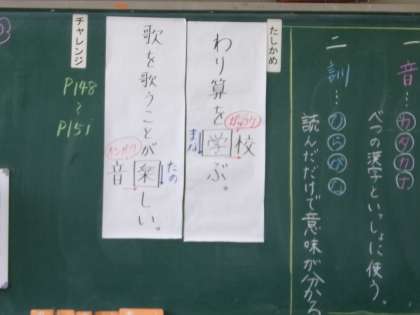 一 音…カタカナ
べつの漢字といっしょに使う。
二 訓…ひらがな
読んだだけで意味が分かる
たしかめ
わり算を学ぶ。
まな
がっこう
校
歌を歌うことが楽しい。
たの
オンガク
音
チャレンジ
P148
〜
P151